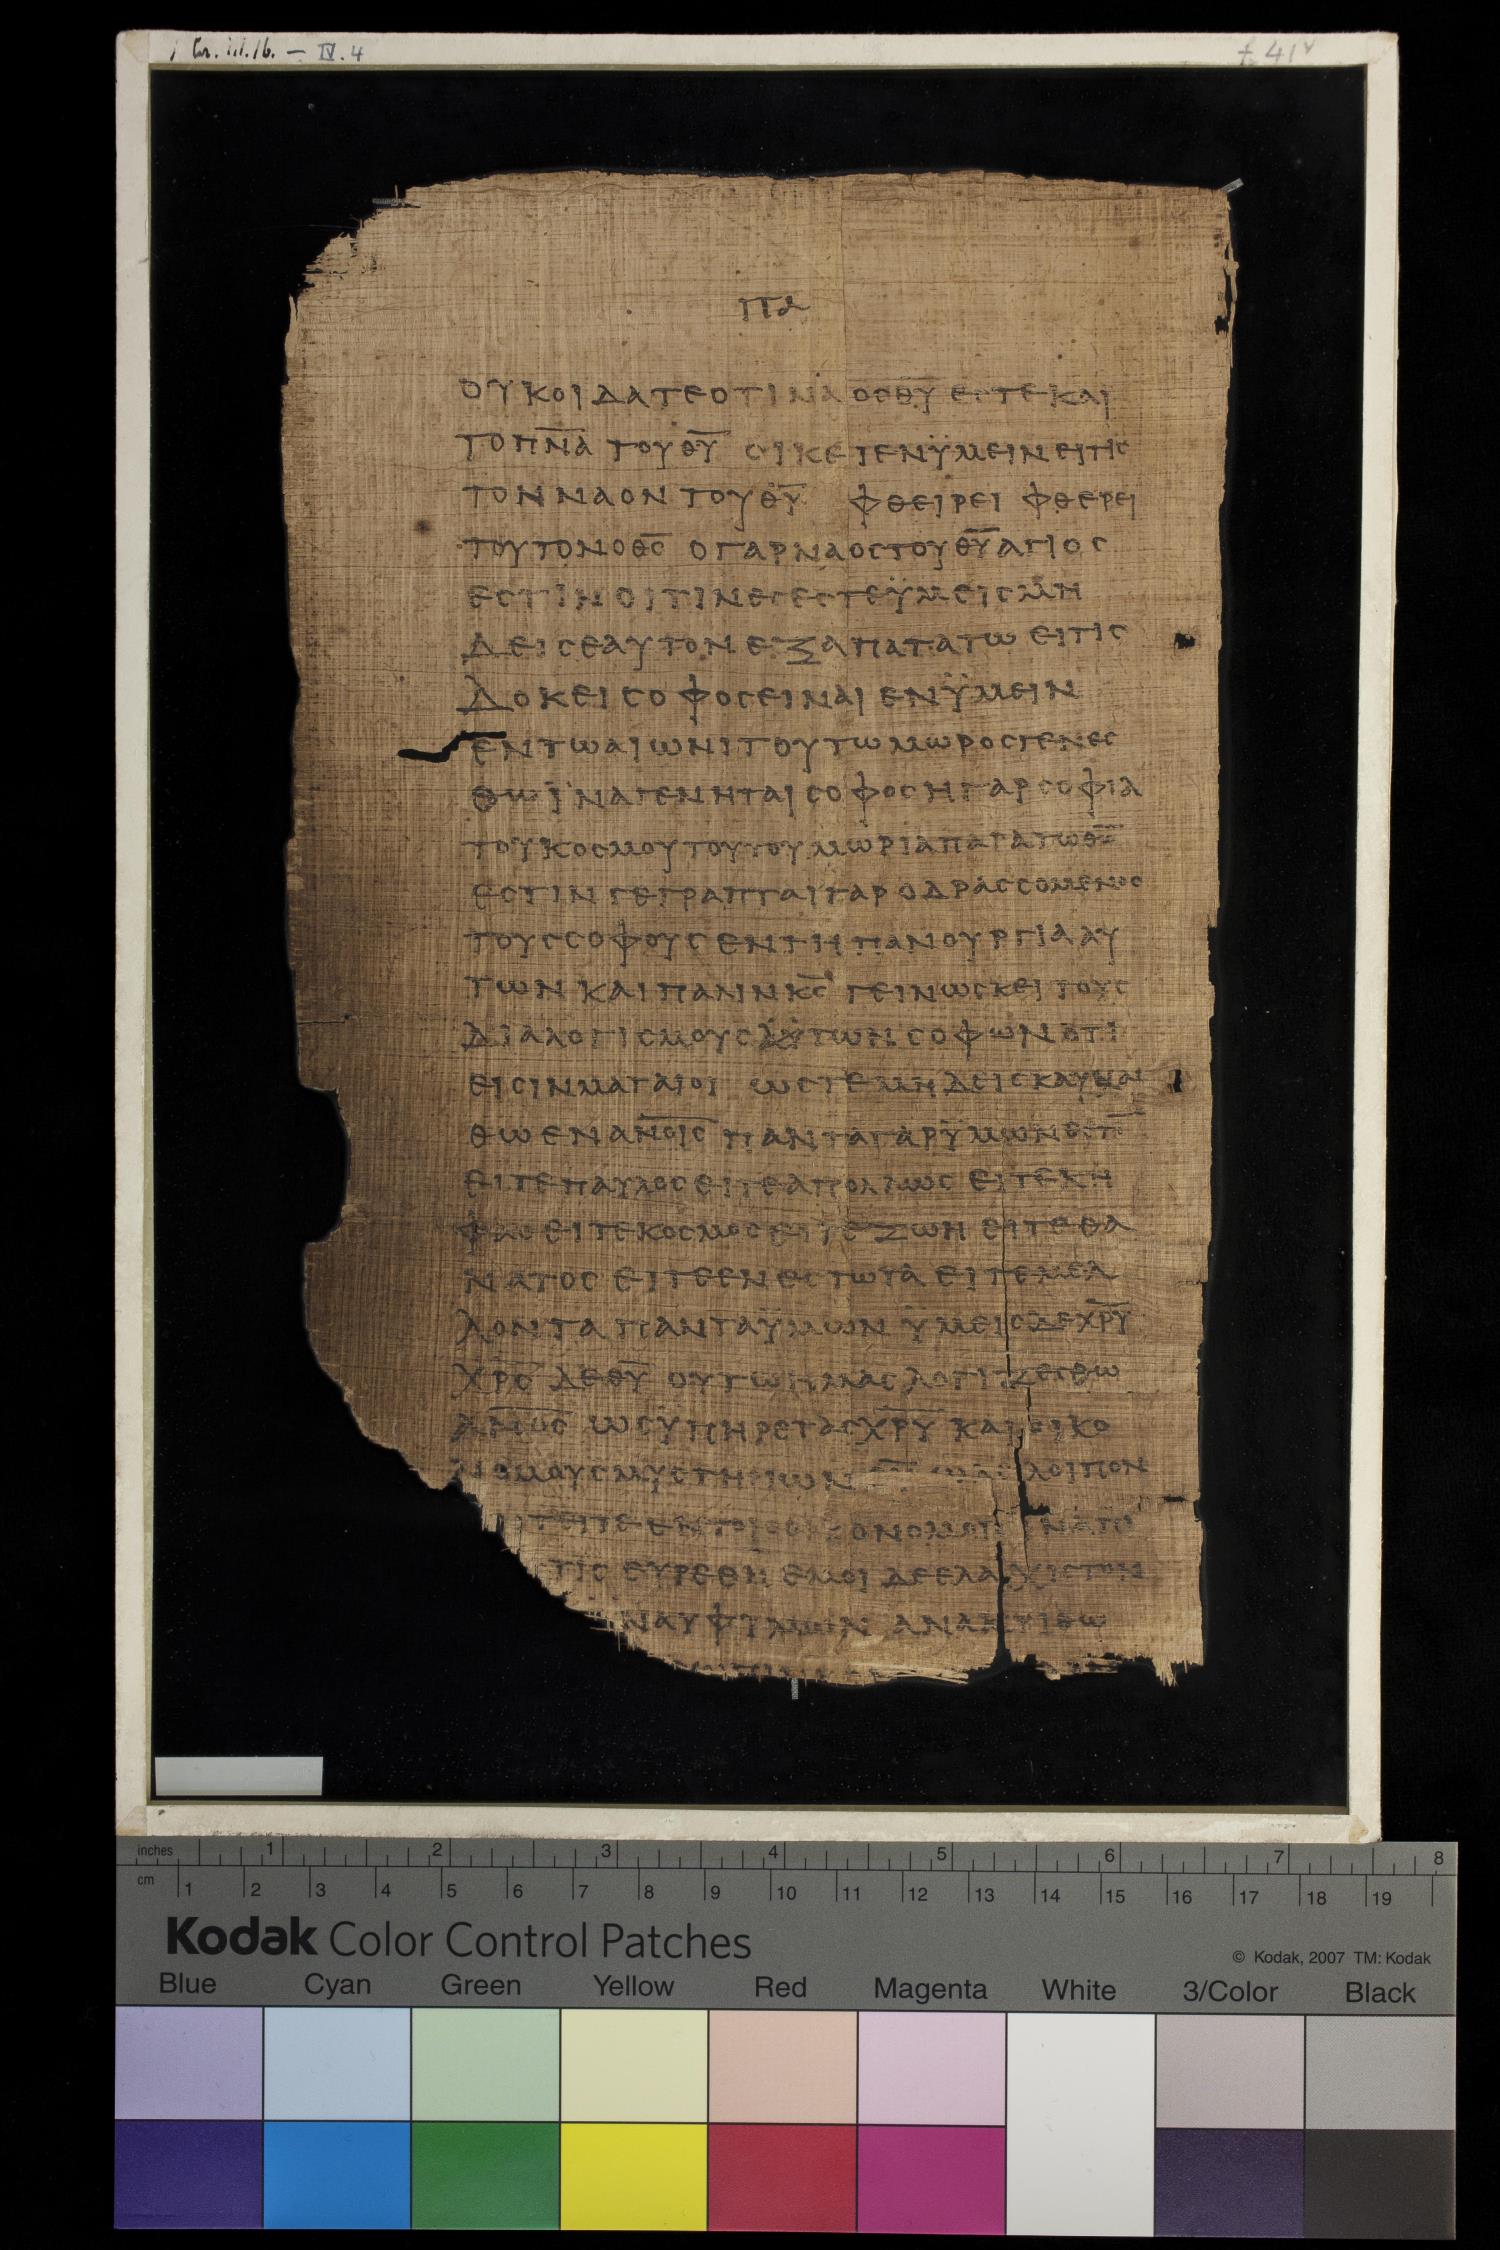 1 Cor. iii.16. – IV.4
f. 41v
ΠΑ
ΟΥΚΟΙΔΑΤΕΟΤΙΝΑΟΣΘΥ̅ΕΣΤΕΚΑΙ
ΤΟΠΝ̅Α̅ ΤΟΥΘΥ̅ ΟΙΚΕΙΕΝΫΜΕΙΝΕΙΤΙΣ
ΤΟΝΝΑΟΝΤΟΥΘΥ̅ ΦΘΕΙΡΕΙ ΦΘΕΡΕΙ
ΤΟΥΤΟΝΟΘΣ̅ ΟΓΑΡΝΑΟΣΤΟΥΘΥ̅ΑΓΙΟΣ
ΕΣΤΙΝΟΙΤΙΝΕΣΕΣΤΕΫΜΕΙΣΜΗ
ΔΕΙΣΕΑΥΤΟΝΕΞΑΠΑΤΑΤΩΕΙΤΙΣ
ΔΟΚΕΙΣΟΦΟΣΕΙΝΑΙΕΝΫΜΕΙΝ
ΕΝΤΩΑΙΩΝΙΤΟΥΤΩΜΩΡΟΣΓΕΝΕΣ
ΘΩΪΝΑΓΕΝΗΤΑΙΣΟΦΟΣΗΓΑΡΣΟΦΙΑ
ΤΟΥΚΟΣΜΟΥΤΟΥΤΟΥΜΩΡΙΑΠΑΡΑΤΩΘΩ̅
ΕΣΤΙΝΓΕΓΡΑΠΤΑΙΓΑΡΟΔΡΑΣΣΟΜΕΝΟΣ
ΤΟΥΣΣΟΦΟΥΣΕΝΤΗΠΑΝΟΥΡΓΙΑΑΥ
ΤΩΝΚΑΙΠΑΛΙΝΚΣ̅ΓΕΙΝΩΣΚΕΙΤΟΥΣ
ΔΙΑΛΟΓΙΣΜΟΥΣ ΤΩΝΣΟΦΩΝΟΤΙ
ΕΙΣΙΝΜΑΤΑΙΟΙ ΩΣΤΕΜΗΔΕΙΣΚΑΥΧΑΣ
ΘΩΕΝΑΝ̅Ο̅Ι̅Σ̅ΠΑΝΤΑΓΑΡΫΜΩΝΕΣΤΙ̅
ΕΙΤΕΠΑΥΛΟΣΕΙΤΕΑΠΟΛΛΩΣΕΙΤΕΚΗ
ΦΑΣΕΙΤΕΚΟΣΜΟΣΕΙΤΕΖΩΗΕΙΤΕΘΑ
ΝΑΤΟΣΕΙΤΕΕΝΕΣΤΩΤΑΕΙΤΕΜΕΛ
ΛΟΝΤΑΠΑΝΤΑΫΜΩΝΫΜΕΙΣΔΕΧΡΥ̅
ΧΡΣ̅ΔΕΘΥ̅ΟΥΤΩΣΗΜΑΣΛΟΓΙΖΕΣΘΩ
ΑΝ̅Ο̅Σ̅ΩΣΫΠΗΡΕΤΑΣΧΡΥ̅ΚΑΙΟΙΚΟ
ΝΟΜΟΥΣΜΥΣΤΗΡΙΩΝΘΥ̅ΩΔΕΛΟΙΠΟΝ
ΖΗΤΕΙΤΕΕΝΤΟΙΣΟΙΚΟΝΟΜΟΙΣΪΝΑΠΙ
ΤΙΣΕΥΡΕΘΗΕΜΟΙΔΕΕΛΑΧΙΣΤΟΝ
ΝΑΥΦΫΜΩΝΑΝΑΚΡΙΘΩ
inches 1 2 3 4 5 6 7 8
cm 1 2 3 4 5 6 7 8 9 10 11 12 13 14 15 16 17 18 19
Kodak Color Control Patches
© Kodak, 2007 TM: Kodak
Blue Cyan Green Yellow Red Magenta White 3/Color Black